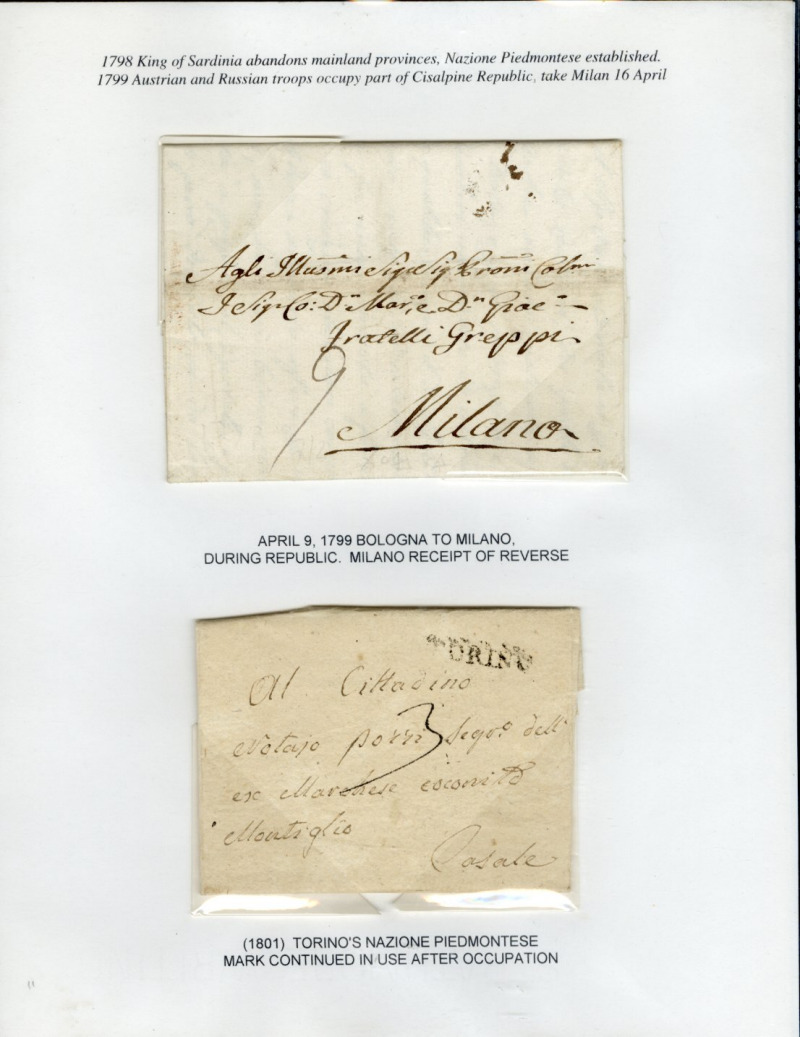 1798 King of Sardinia abandons mainland provinces, Nazione Piedmontese established.
1799 Austrian and Russian troops occupy part of Cisalpine Republic, take Milan 16 April
Agli Illusmi Sig.
I Sig. Co: Dn Mar. e Dn Giac
Fratelli Greppi
9
Milano
APRIL 9, 1799 BOLOGNA TO MILANO,
DURING REPUBLIC. MILANO RECEIPT OF REVERSE
Al Cittadino
Notajo 3 Segro dell'
ex Marchese
Montiglio
Casale
(1801) TORINO'S NAZIONE PIEDMONTESE
MARK CONTINUED IN USE AFTER OCCUPATION